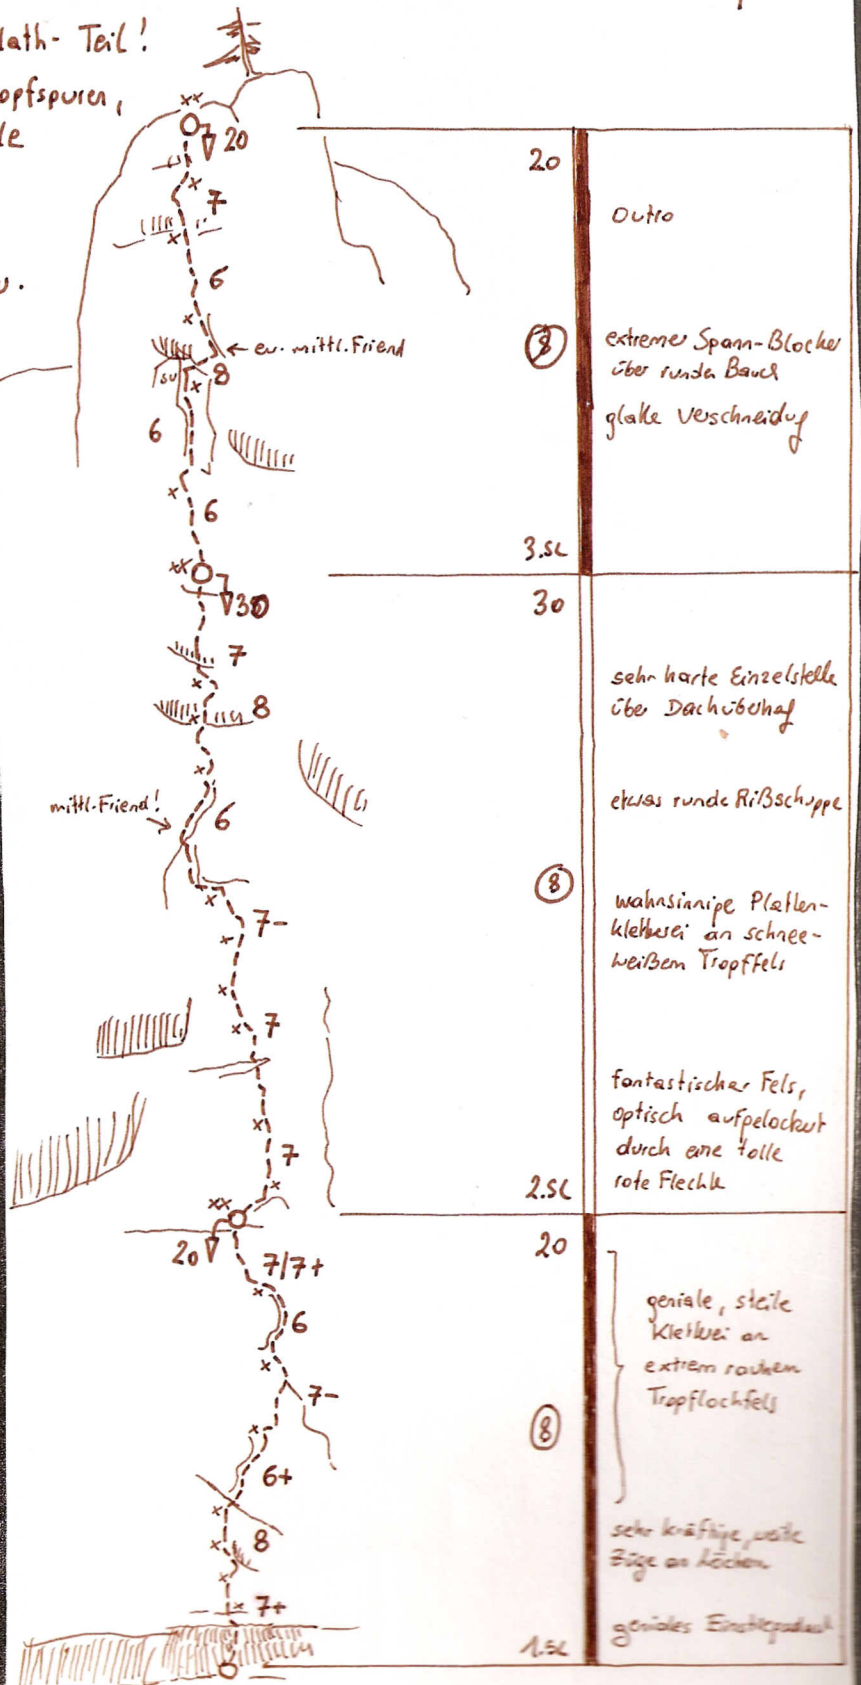 Teil!
opfspuren,
xx
20
7
6
← ev. mittl. Friend
8
su
6
6
xx
30
7
8
mittl. Friend!
6
7-
7
7
xx
20
7/7+
6
7-
6+
8
7+
20
Outro
8
extremer Spann-Blocker
über runden Bauch
glatte Verschneidug
3.SL
30
sehr harte Einzelstelle
über Dachüberhag
etwas runde Rißschuppe
8
wahnsinnige Platten-
kletterei an schnee-
weißem Tropffels
fantastischer Fels,
optisch aufgelockert
durch eine tolle
rote Flechte
2.SL
20
geniale, steile
Kletterei an
extrem rauhem
Tropflochfels
8
sehr kräftige, weite
Züge an Löchern
geniales
1.SL